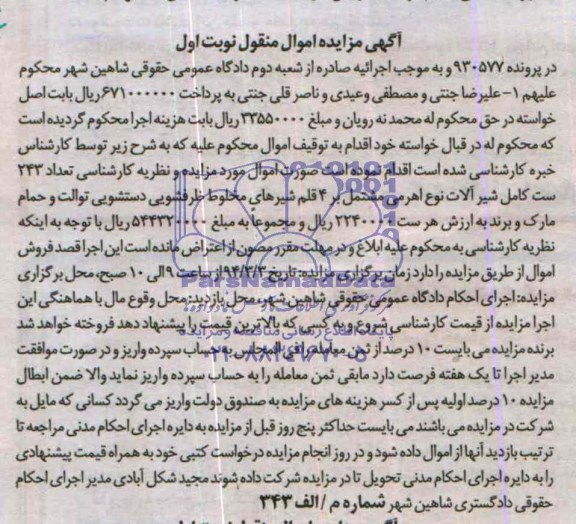 آگهی مزایده اموال منقول نوبت اول
در پرونده ۹۳۰۵۷۷ و به موجب اجرائیه صادره از شعبه دوم دادگاه عمومی حقوقی شاهین شهر محکوم
علیهم ۱- علیرضا جنتی و مصطفی وعیدی و ناصر قلی جنتی به پرداخت ۶۷۱۰۰۰۰۰۰ ریال بابت اصل
خواسته در حق محکوم له محمد نه رویان و مبلغ ۳۳۵۵۰۰۰۰ ریال بابت هزینه اجرا محکوم گردیده است
که محکوم له در قبال خواسته خود اقدام به توقیف اموال محکوم علیه که به شرح زیر توسط کارشناس
خبره کارشناسی شده است اقدام نموده است صورت اموال مورد مزایده و نظریه کارشناسی تعداد ۲۴۳
ست کامل شیر آلات نوع اهرمی مشتمل بر ۴ قلم شیرهای مخلوط ظرفشویی دستشویی توالت و حمام
مارک و برند به ارزش هر ست ۲۲۴۰۰۰۰ ریال و مجموعا به مبلغ ۵۴۴۳۲۰۰۰۰ ریال با توجه به اینکه
نظریه کارشناسی به محکوم علیه ابلاغ و در مهلت مقرر مصون از اعتراض مانده است این اجرا قصد فروش
اموال از طریق مزایده را دارد زمان برگزاری مزایده: تاریخ ۹۴/۳/۳ از ساعت ۹ الی ۱۰ صبح، محل برگزاری
مزایده: اجرای احکام دادگاه عمومی حقوقی شاهین شهر، محل بازدید: محل وقوع مال با هماهنگی این
اجرا مزایده از قیمت کارشناسی شروع و به کسی که بالاترین قیمت را پیشنهاد دهد فروخته خواهد شد
برنده مزایده می بایست ۱۰ درصد از ثمن معامله را فی المجلس به حساب سپرده واریز و در صورت موافقت
مدیر اجرا تا یک هفته فرصت دارد مابقی ثمن معامله را به حساب سپرده واریز نماید والا ضمن ابطال
مزایده ۱۰ درصد اولیه پس از کسر هزینه های مزایده به صندوق دولت واریز می گردد کسانی که مایل به
شرکت در مزایده می باشند می بایست حداکثر پنج روز قبل از مزایده به دایره اجرای احکام مدنی مراجعه تا
ترتیب بازدید آنها از اموال داده شود و در روز انجام مزایده درخواست کتبی خود به همراه قیمت پیشنهادی
را به دایره اجرای احکام مدنی تحویل تا در مزایده شرکت داده شوند مجید شکل آبادی مدیر اجرای احکام
حقوقی دادگستری شاهین شهر شماره م / الف ۳۴۳
ParsNamadData